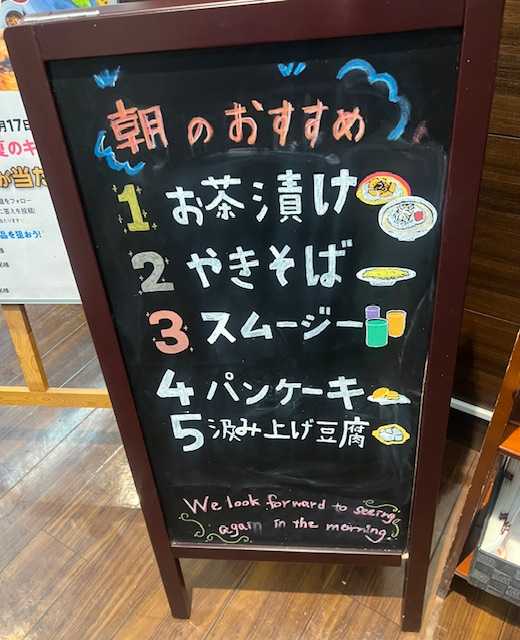 朝のおすすめ
1 お茶漬け
2 やきそば
3 スムージー
4 パンケーキ
5 汲み上げ豆腐
We look forward to seeing
again in the morning.
月17日
夏のキ
が当た
をフォロー
品を狙おう!